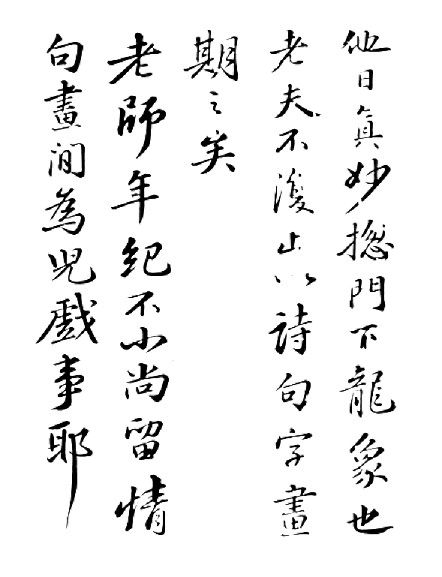 他日真妙揔門下龍象也
老夫不復止以詩句字畫
期之矣
老師年紀不小尚留情
句畫間為兒戲事耶